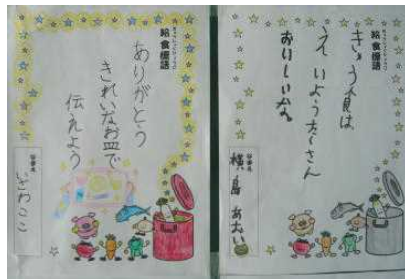 給食標語
ありがとう
きれいなお皿で
伝えよう
いざわここ
給食標語
きゅう食は
えいようたくさん
おいしいな
横島あおい